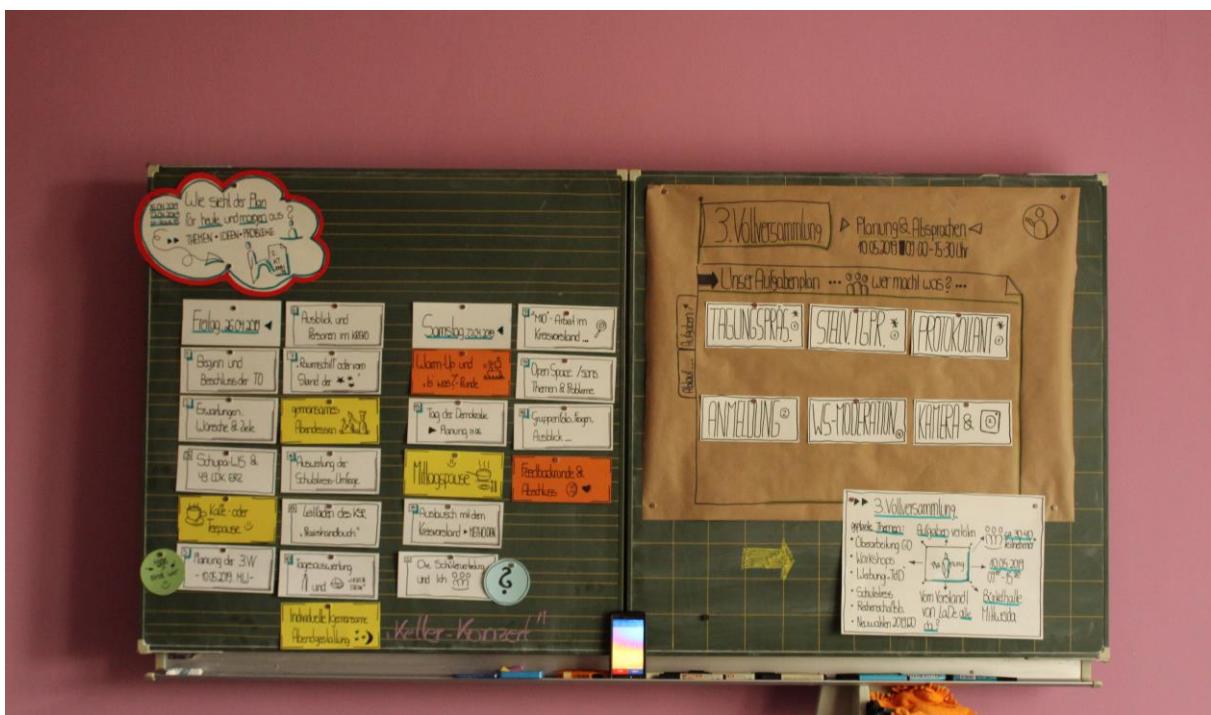 Wie sieht der Plan
für heute und morgen aus?
THEMEN • IDEEN • PROBLEME
Freitag 26.04.2019
Beginn und
Beschluss der TO
Erwartungen,
Wünsche & Ziele
Schupa-WS &
49. LDK ERZ
Kaffee- oder
Teepause
Planung der 3.VV
- 10.05.2019, MW -
Ausblick und
Personen im
"Raumschiff" oder vom
Stand der
gemeinsames
Abendessen
Auswertung der
Schulstress-Umfrage
Leitfaden des KSR
Tagesauswertung
und
Individuelle / gemeinsame
Abendgestaltung
"Keller-Konzert"
Samstag 27.04.2019
Warm-Up und
"Is was?"-Runde
Tag der Demokratie
Planung
Mittagspause
Austausch mit dem
Kreisvorstand • METHODEN
Die Schülervertretung
und Ich
"MID"-Arbeit im
Kreisvorstand ...
Open Space / sons.
Themen & Probleme
Gruppenfoto, Fragen,
Ausblick ...
Feedbackrunde &
Abschluss
3. Vollversammlung
Planung & Absprachen
10.05.2019 09:00-15:30 Uhr
Unser Aufgabenplan ... wer macht was? ...
Ablauf ... Aufgaben
TAGUNGSPRÄS.
STELLV. TGPR.
PROTOKOLLANT
ANMELDUNG
WS-MODERATION
KAMERA &
3. Vollversammlung
geplante Themen:
• Überarbeitung GO
• Workshops
• Werbung-TdD
• Schulstress
• Rechenschaftsb.
• Neuwahlen 2019/20
Aufgaben verteilen
Vom Vorstand /
von LaDe alle
da?
ca. 30-40
Teilnehmer
10.05.2019
Bürkelhalle
Mittweida